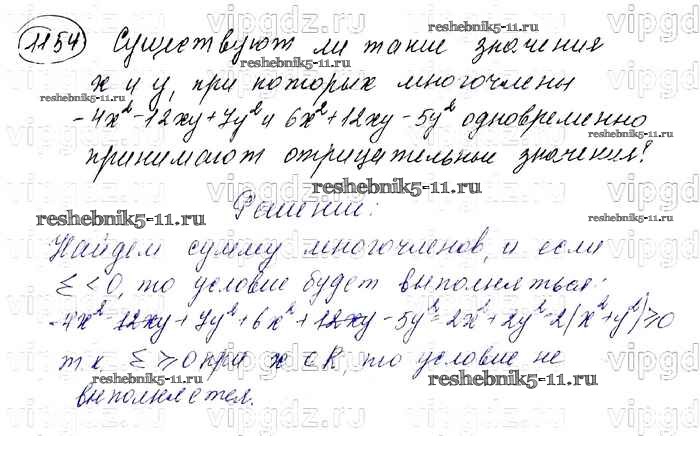 1154 Существуют ли такие значения
х и у, при которых многочлены
-4x²-12xy+7y² и 6x²+12xy-5y² одновременно
принимают отрицательные значения?
Решение:
Найдем сумму многочленов, и если
Σ<0, то условие будет выполняться:
-4x²-12xy+7y²+6x²+12xy-5y²=2x²+2y²=2(x²+y²)≥0
т.к. Σ≥0 при x ∈ R, то условие не
выполняется.
reshebnik5-11.ru
reshebnik5-11.ru
reshebnik5-11.ru
reshebnik5-11.ru
reshebnik5-11.ru
reshebnik5-11.ru
reshebnik5-11.ru
reshebnik5-11.ru
reshebnik5-11.ru
vipgdz.ru